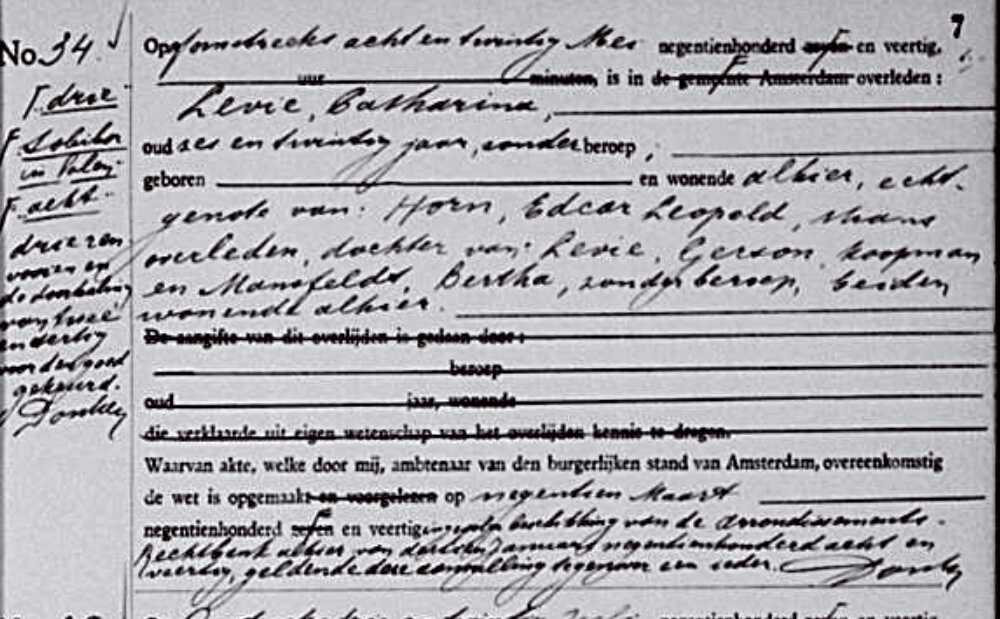 7
No. 34
Op omstreeks acht en twintig Mei negentienhonderd zeven en veertig,
uur minuten, is in de gemeente Amsterdam overleden:
Levie, Catharina,
oud zes en twintig jaar, zonder beroep,
geboren en wonende alhier, echt-
genote van: Horn, Edcar Leopold, thans
overleden, dochter van: Levie, Gerson, koopman
en Mansfeldt, Bertha, zonder beroep, beiden
wonende alhier.
De aangifte van dit overlijden is gedaan door:
beroep
oud jaar, wonende
die verklaarde uit eigen wetenschap van het overlijden kennis te dragen.
Waarvan akte, welke door mij, ambtenaar van den burgerlijken stand van Amsterdam, overeenkomstig
de wet is opgemaakt en voorgelezen op negentien Maart
negentienhonderd zeven en veertig ingevolge beschikking van de Arrondissements-
Rechtbank alhier van dertien Januari negentienhonderd acht en
veertig, geldende deze aanvulling tegenover een ieder.
drie
Sobibor
in Polen
acht
drie ren
vooien en
de doorhaling
van twee
en dertig
woorden goed
gekeurd.